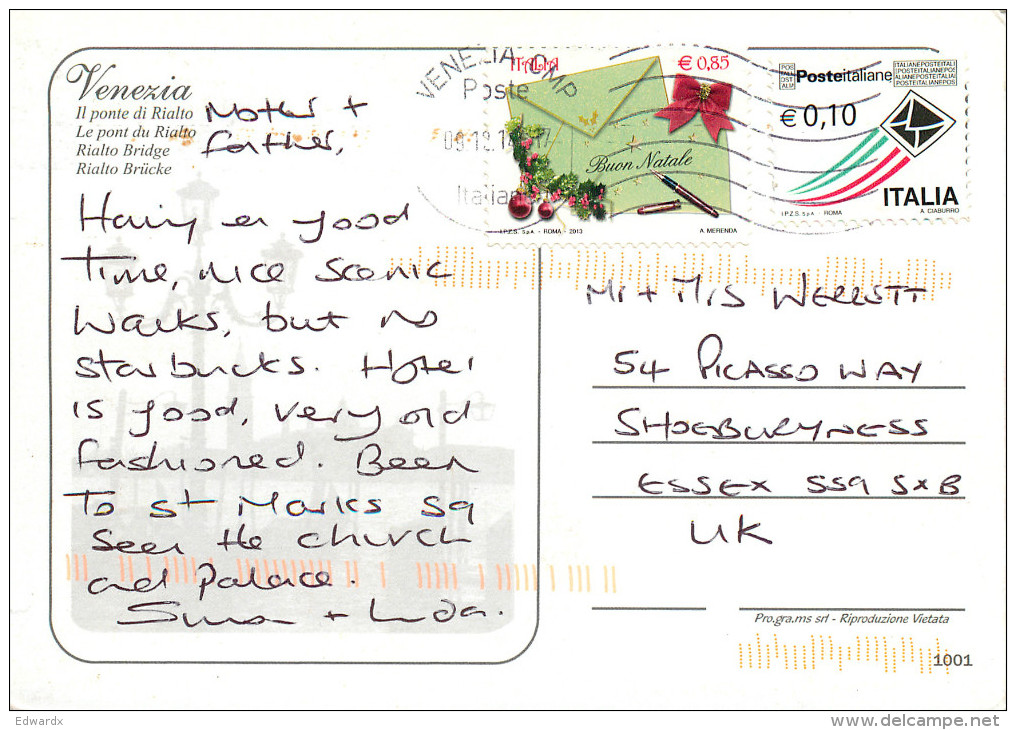 Venezia
Il ponte di Rialto
Le pont du Rialto
Rialto Bridge
Rialto Brücke
Mother +
Father,
Having a good
Time, nice scenic
Walks, but no
starbucks. Hotel
is good, very old
fashioned. Been
To st Marks Sq
seen the church
and Palace.
+ Linda.
VENEZIA CMP
Poste
Italiane
ITALIA
€ 0,85
Buon Natale
I.P.Z.S. S.p.A. - ROMA - 2013
A. MERENDA
Posteitaliane
€ 0,10
ITALIA
I.P.Z.S. S.p.A. - ROMA
A. CIABURRO
Mr + Mrs
54 PICASSO WAY
SHOEBURYNESS
ESSEX SS9 5XB
UK
Pro.gra.ms srl - Riproduzione Vietata
1001
Edwardx
www.delcampe.net